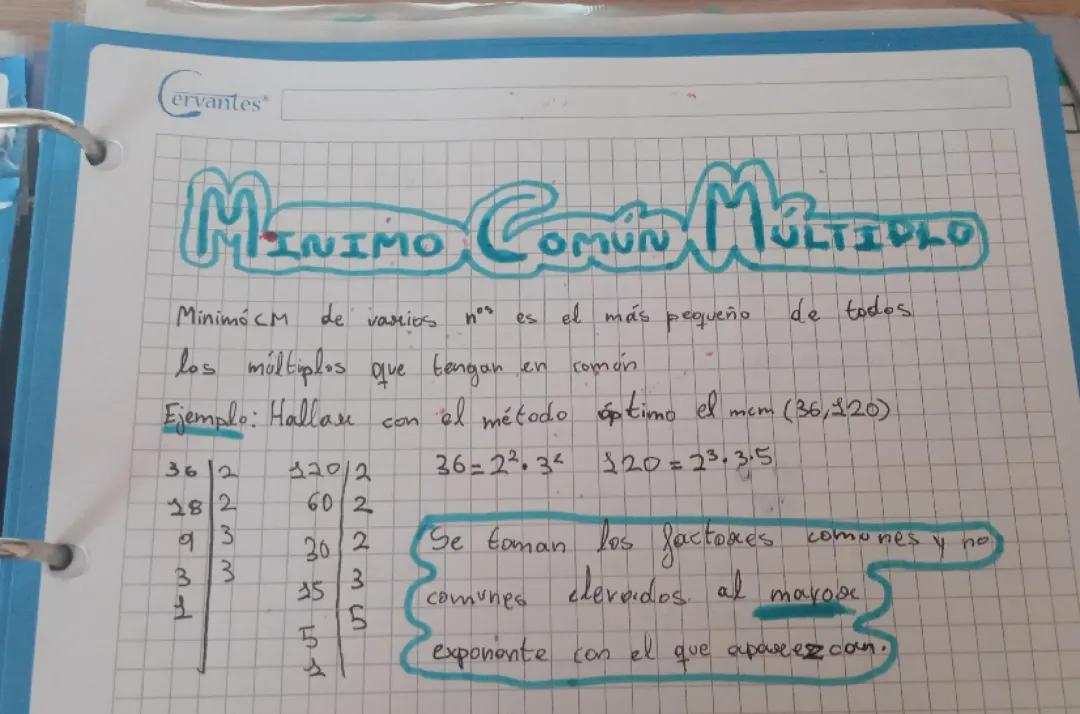 Cervantes®
MINIMO COMÚN MÚLTIPLO
Minimó CM de varios nos es el más pequeño de todos
los múltiplos que tengan en común
Ejemplo: Hallar con el método óptimo el mcm (36,120)
36 | 2    120 | 2    36 = 2². 3²    120 = 2³. 3.5
18 | 2    60 | 2
9 | 3    30 | 2
3 | 3    15 | 3
1    5 | 5
1
Se toman los factores comunes y no
comunes elevados al mayor
exponente con el que aparezcan.